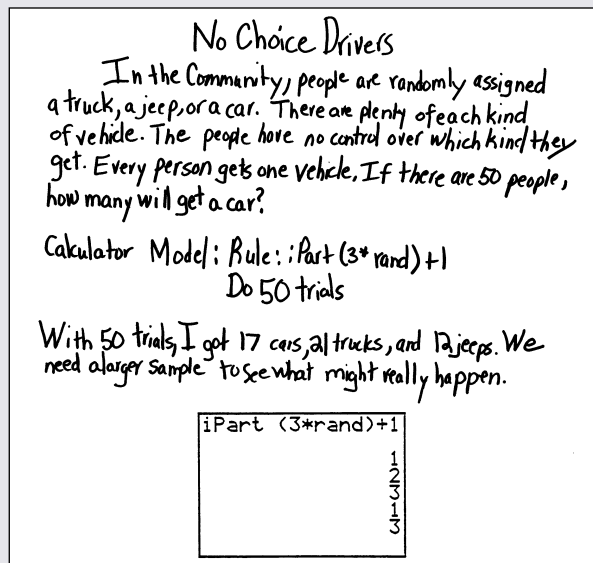 No Choice Drivers
In the Community, people are randomly assigned
a truck, a jeep, or a car. There are plenty of each kind
of vehicle. The people have no control over which kind they
get. Every person gets one vehicle. If there are 50 people,
how many will get a car?
Calculator Model: Rule: iPart (3* rand) +1
Do 50 trials
With 50 trials, I got 17 cars, 21 trucks, and 12 jeeps. We
need a larger sample to see what might really happen.
iPart (3*rand)+1
1
2
3
1
3